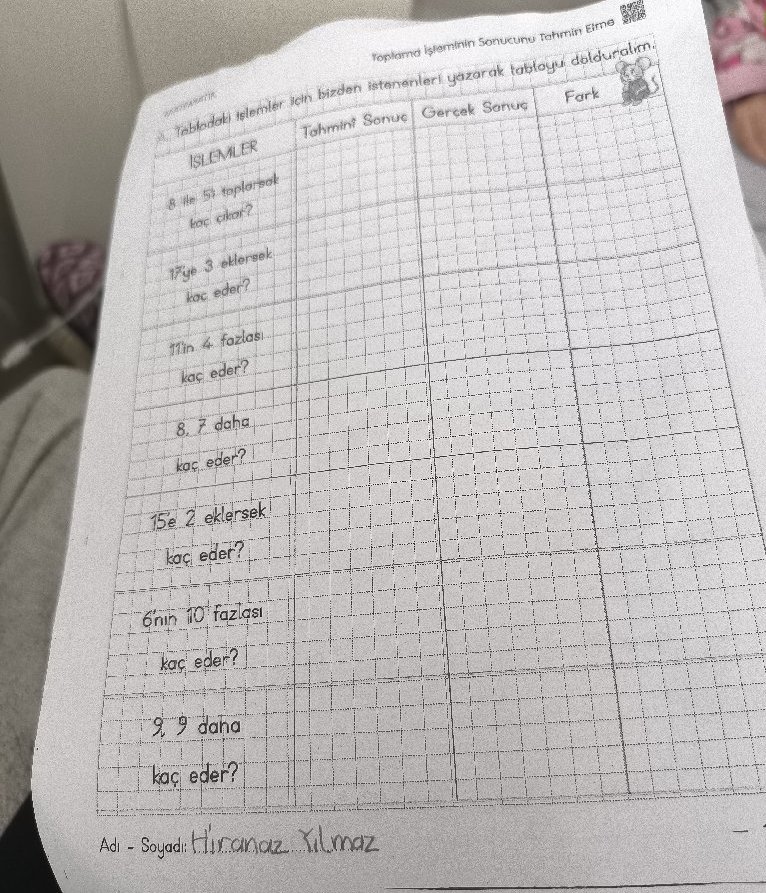 Toplama İşleminin Sonucunu Tahmin Etme
Tablodaki işlemler için bizden istenenleri yazarak tabloyu dolduralım.
İŞLEMLER Tahminî Sonuç Gerçek Sonuç Fark
8 ile 5'i toplarsak
kaç çıkar?
17'ye 3 eklersek
kaç eder?
11'in 4 fazlası
kaç eder?
8, 7 daha
kaç eder?
15'e 2 eklersek
kaç eder?
6'nın 10 fazlası
kaç eder?
9, 9 daha
kaç eder?
Adı - Soyadı: Hiranaz Yılmaz